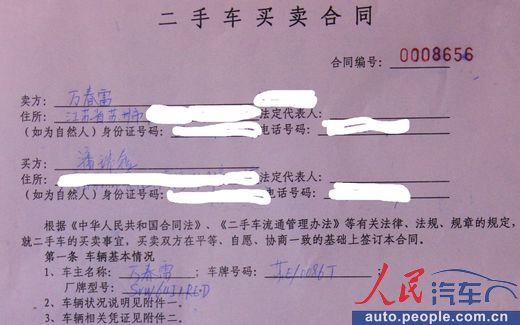 二手车买卖合同
合同编号: 0008656
卖方: 万春雷
住所: 江苏省苏州市 法定代表人:
(如为自然人)身份证号码: 电话号码:
买方:
住所: 法定代表人:
(如为自然人)身份证号码: 电话号码:
根据《中华人民共和国合同法》、《二手车流通管理办法》等有关法律、法规、规章的规定,
就二手车的买卖事宜,买卖双方在平等、自愿、协商一致的基础上签订本合同。
第一条 车辆基本情况
1、车主名称: 万春雷 车牌号码: 苏E/0086T
厂牌型号:
2、车辆状况说明见附件一。
3、车辆相关凭证见附件二。
人民汽车
auto.people.com.cn